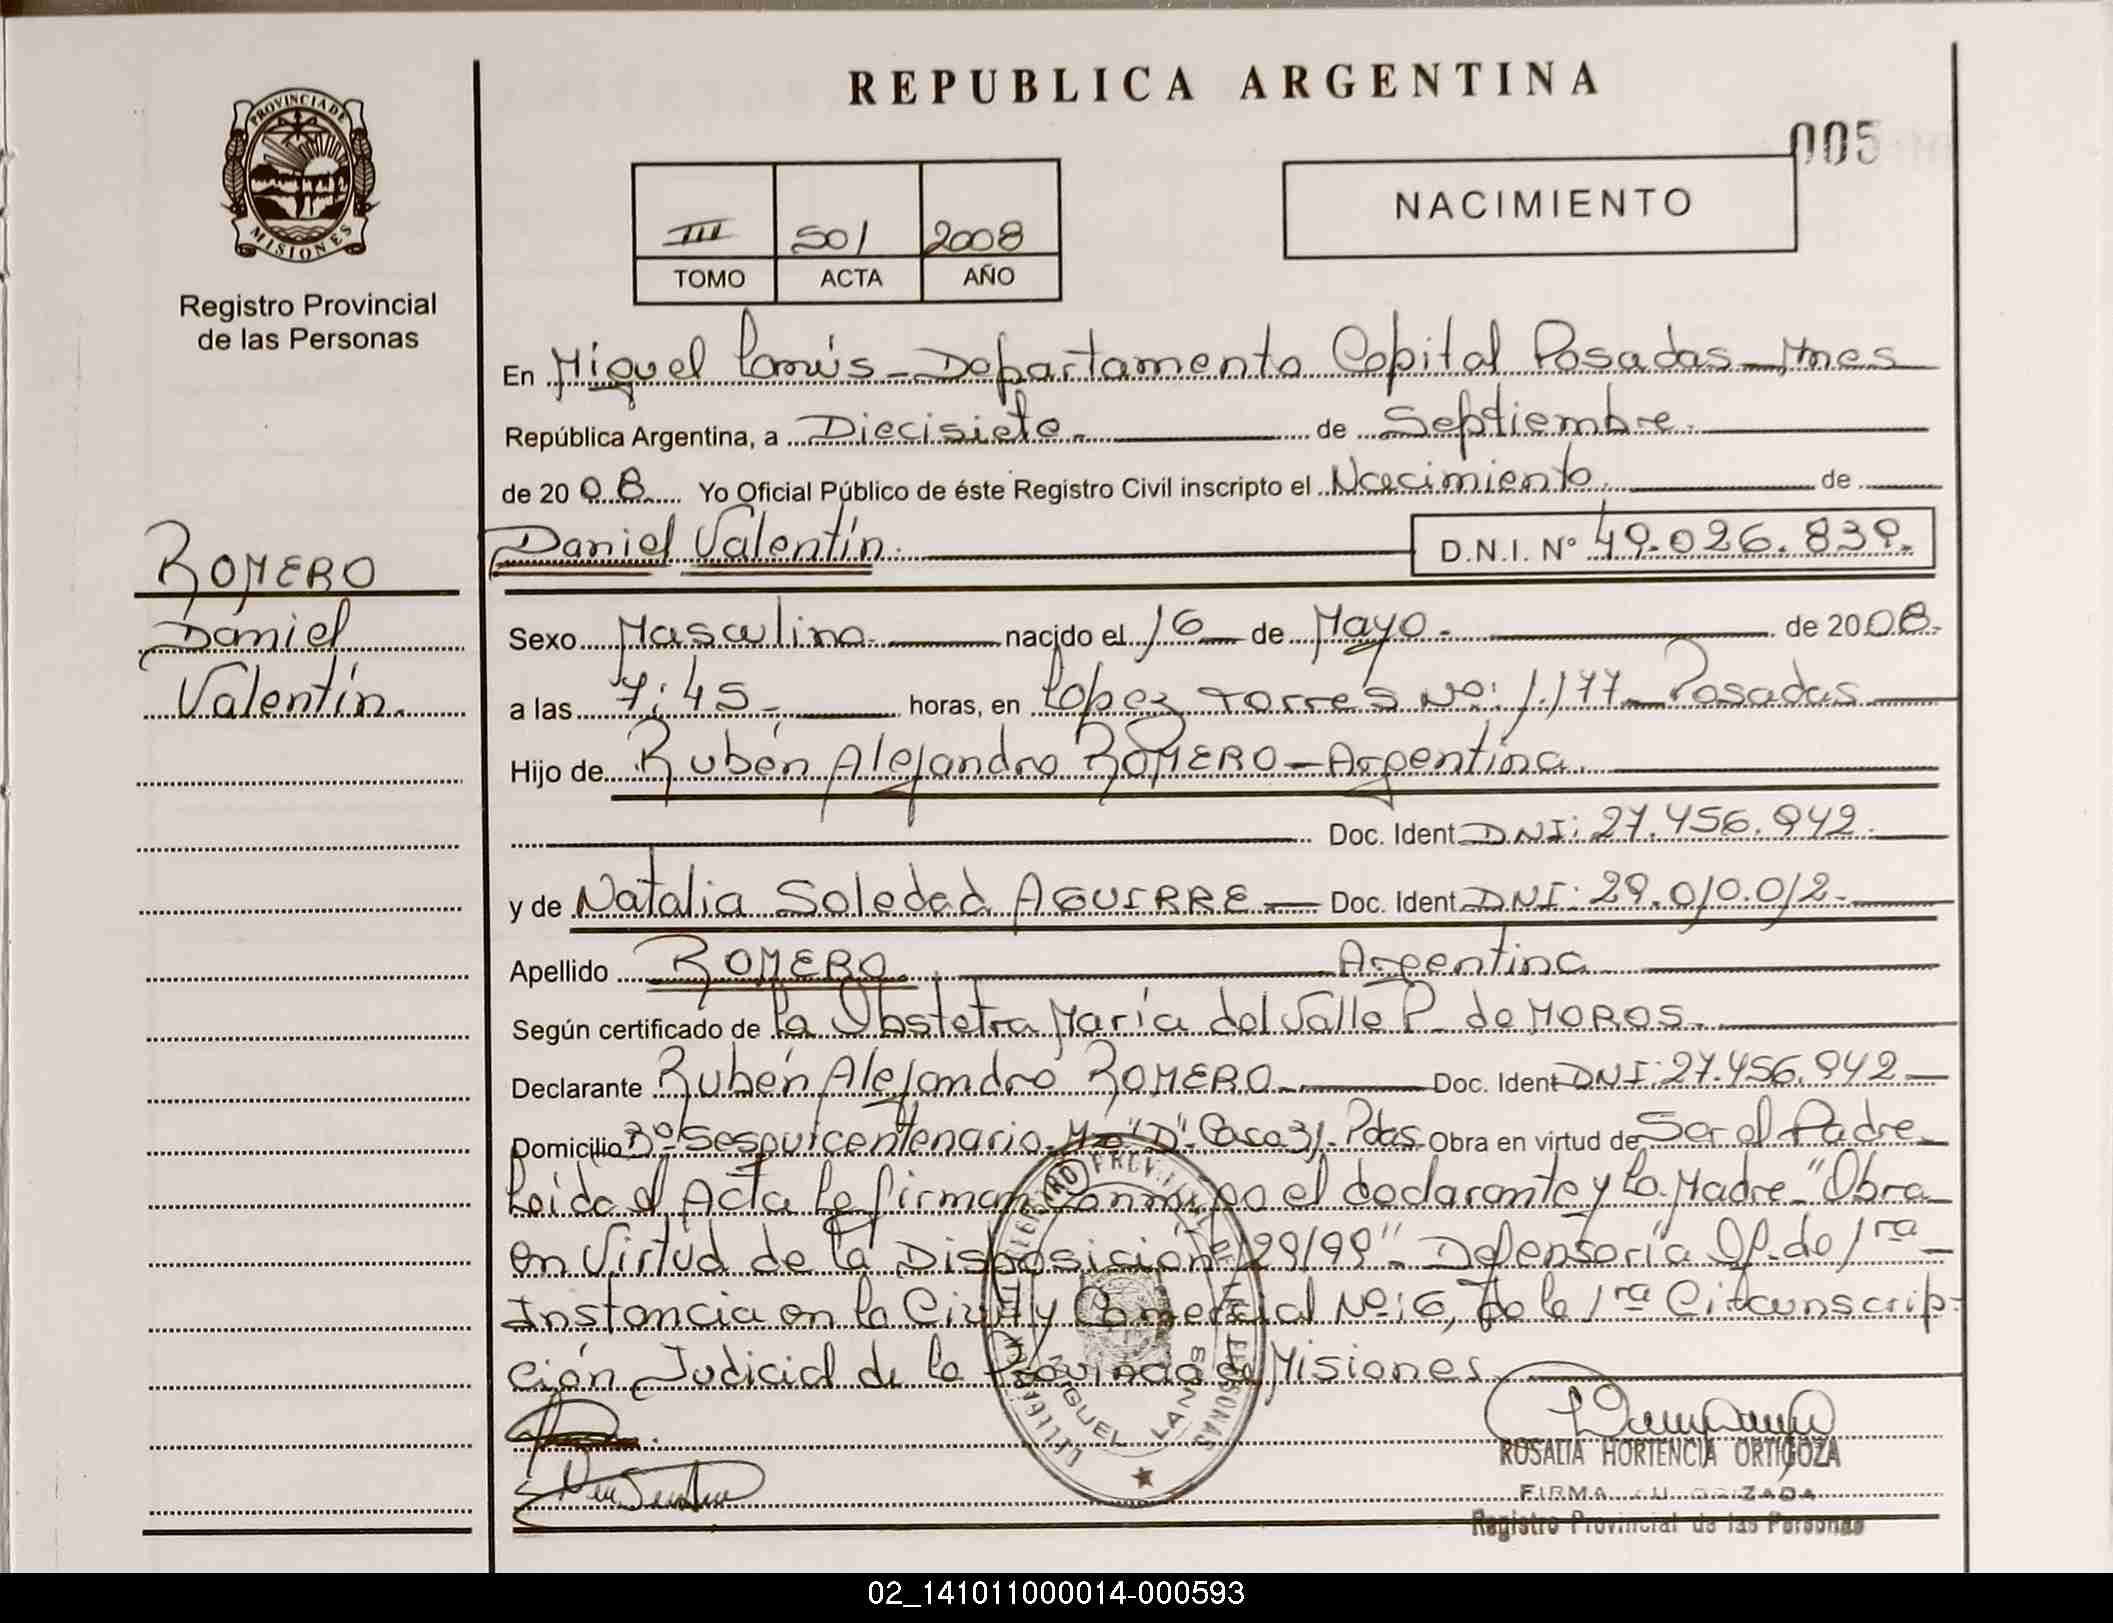 REPUBLICA ARGENTINA
005
PROVINCIA DE
MISIONES
Registro Provincial
de las Personas
III 501 2008
TOMO ACTA AÑO
NACIMIENTO
En Miguel Lanús - Departamento Capital Posadas - Mnes
República Argentina, a Diecisiete. de Septiembre.
de 20 08 Yo Oficial Público de éste Registro Civil inscripto el Nacimiento. de
Daniel Valentín. D.N.I. Nº 49.026.839.
ROMERO
Daniel
Valentín.
Sexo Masculino. nacido el 16 de Mayo. de 2008.
a las 7:45 horas, en López Torres Nº: 1.177 - Posadas
Hijo de Rubén Alejandro ROMERO - Argentina.
Doc. Ident DNI: 27.456.942.
y de Natalia Soledad AGUIRRE - Doc. Ident DNI: 29.010.012.
Apellido ROMERO Argentina
Según certificado de La Obstetra María del Valle P. de MOROS.
Declarante Rubén Alejandro ROMERO. Doc. Ident DNI: 27.456.942
Domicilio Bº Sesquicentenario. Mz "D". Casa 31. Pdas. Obra en virtud de Ser el Padre
Leída el Acta la firman conmigo el declarante y la Madre - "Obra
en Virtud de la Disposición 29/99". Defensoría Of. de 1ra
Instancia en lo Civil y Comercial Nº: 6, de la 1ra Circunscrip-
ción Judicial de la Provincia de Misiones
MIGUEL LANUS
ROSALIA HORTENCIA ORTIGOZA
FIRMA AUTORIZADA
Registro Provincial de las Personas
02_141011000014-000593